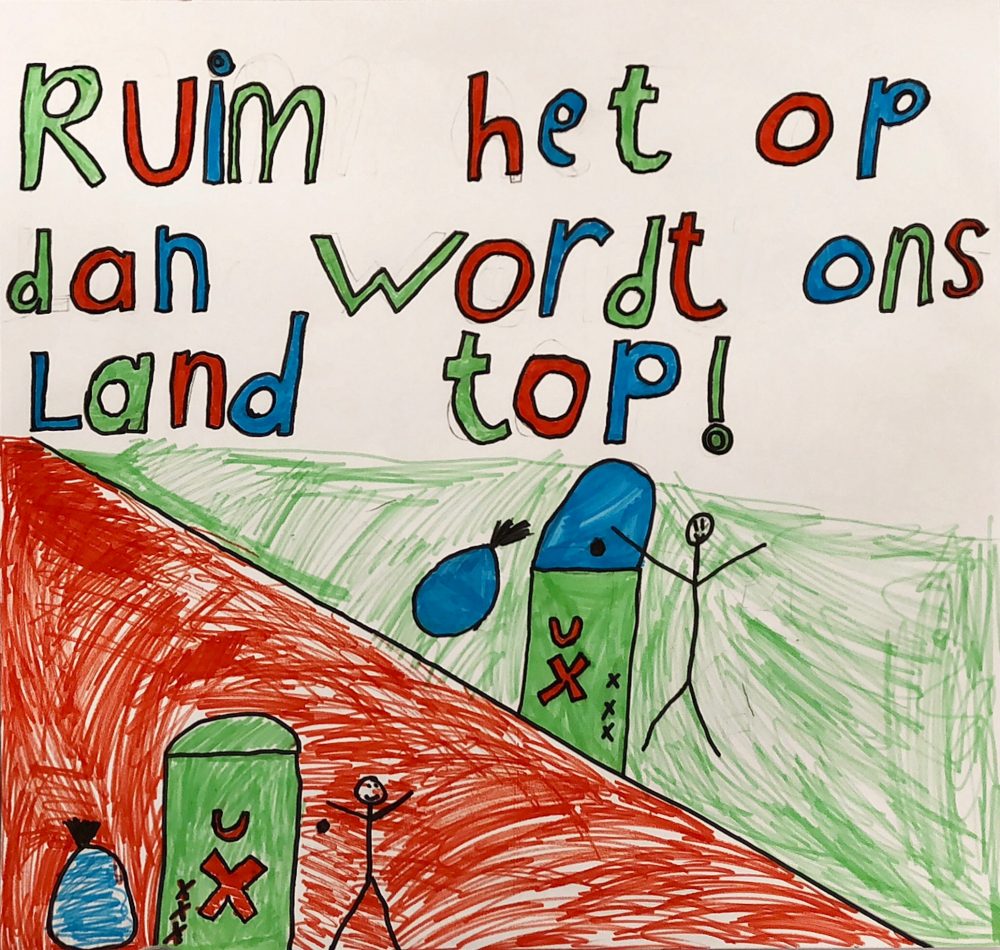 Ruim het op
dan wordt ons
Land top!
U
X
x
x
x
U
X
x
x
x